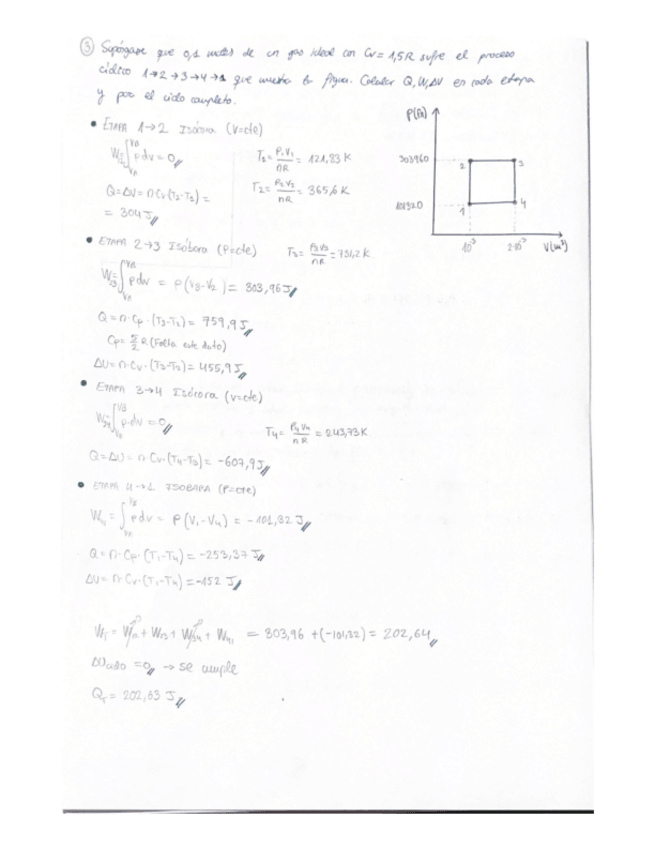 ③ Supóngase que 0,1 moles de un gas ideal con Cv = 1,5R sufre el proceso
cíclico 1→2→3→4→1 que muestra la figura. Calcular Q, W, ΔU en cada etapa
y por el ciclo completo.
• ETAPA 1→2 ISÓCORA (V=cte)
W = ∫ p dv = 0
T1 = P1V1/nR = 121,83 K
T2 = P2V2/nR = 365,6 K
Q = ΔU = n Cv (T2-T1) =
= 304 J
P(Pa)
303960
101320
2 3
1 4
10⁻³ 2·10⁻³ V(m³)
• ETAPA 2→3 ISÓBARA (P=cte) T3 = P3V3/nR = 731,2 K
W23 = ∫ p dv = P(V3-V2) = 303,96 J
Q = n·Cp·(T3-T2) = 759,9 J
Cp = 5/2 R (Falta este dato)
ΔU = n·Cv·(T3-T2) = 455,9 J
• ETAPA 3→4 ISÓCORA (V=cte)
W34 = ∫ p·dv = 0
T4 = P4V4/nR = 243,73 K
Q = ΔU = n·Cv·(T4-T3) = -607,9 J
• ETAPA 4→1 ISOBARA (P=cte)
W41 = ∫ p dv = P(V1-V4) = -101,32 J
Q = n·Cp·(T1-T4) = -253,37 J
ΔU = n·Cv·(T1-T4) = -152 J
WT = W12 + W23 + W34 + W41 = 303,96 + (-101,32) = 202,64
ΔUciclo = 0 → se cumple
QT = 202,63 J